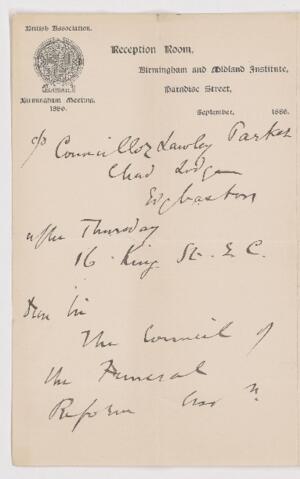 British Association.
Reception Room,
Birmingham and Midland Institute,
Paradise Street,
Birmingham Meeting.
1886.
September, 1886.
c/o Councillor Lawley Parker
Chad Lodge
Edgbaston
after Thursday
16 King St. E.C.
Dear Sir
The Council of
the Funeral
Reform Assn